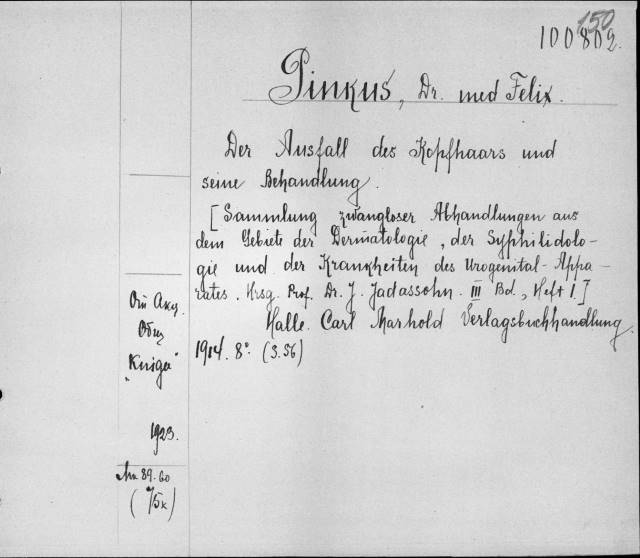 150
100802.
Pinkus, Dr. med Felix.
Der Ausfall des Kopfhaars und
seine Behandlung.
[Sammlung zwangloser Abhandlungen aus
dem Gebiete der Dermatologie, der Syphilidolo-
gie und der Krankheiten des Urogenital-Appa-
rates. Hrsg. Prof. Dr. J. Jadassohn. III Bd., Heft 1.]
Halle. Carl Marhold Verlagsbuchhandlung.
1914. 8°. (S. 56)
Отъ Акц.
Общ
"Книга"
1923.
89.60